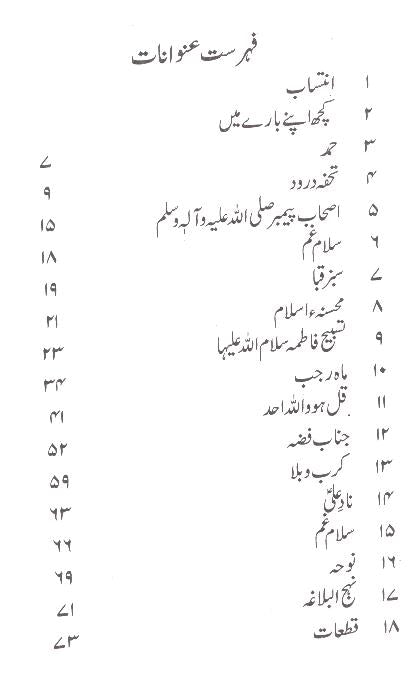 فہرست عنوانات
۱ انتساب
۲ کچھ اپنے بارے میں
۳ حمد ۷
۴ تحفہ درود ۹
۵ اصحاب پیمبر صلی اللہ علیہ وآلہ وسلم ۱۵
۶ سلام غم ۱۸
۷ سبز قبا ۱۹
۸ محسنہء اسلام ۲۱
۹ تسبیح فاطمہ سلام اللہ علیہا ۲۳
۱۰ ماہ رجب ۳۴
۱۱ قل ھو واللہ احد ۴۱
۱۲ جناب فضہ ۵۲
۱۳ کرب و بلا ۵۹
۱۴ نادِ علیؑ ۶۳
۱۵ سلام غم ۶۶
۱۶ نوحہ ۶۹
۱۷ نہج البلاغہ ۷۱
۱۸ قطعات ۷۳